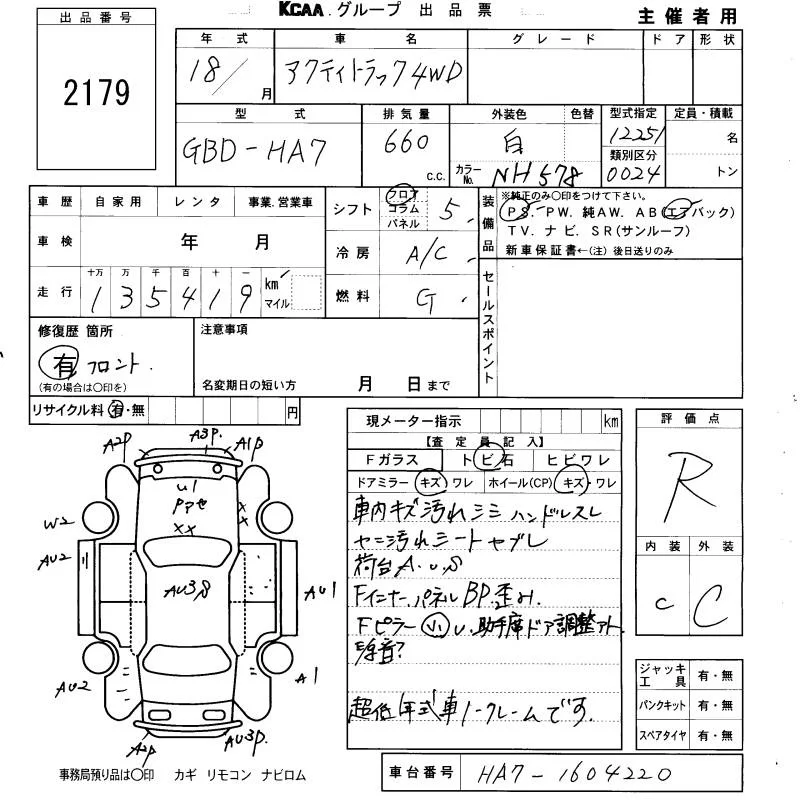 KCAA グループ 出品票
主催者用
出品番号
2179
年式 車名 グレード ドア 形状
18/ 月 アクティトラック4WD
型式 排気量 外装色 色替 型式指定 定員・積載
GBD-HA7 660 c.c. 白 12251 名
カラーNo. NH578 類別区分 0024 トン
車歴 自家用 レンタ 事業.営業車
車検 年 月
走行 十万 万 千 百 十 一
1 3 5 4 1 9 km マイル
シフト フロア コラム パネル 5
冷房 A/C
燃料 G
装備品
※純正のみ○印をつけて下さい。
PS. PW. 純AW. AB(エアバック)
TV. ナビ. SR(サンルーフ)
新車保証書←(注) 後日送りのみ
セールスポイント
修復歴 箇所
有 フロント.
(有の場合は○印を)
注意事項
名変期日の短い方 月 日まで
リサイクル料 有・無 円
現メーター指示 km
【査定員記入】
Fガラス トビ石 ヒビワレ
ドアミラー キズ ワレ ホイール(CP) キズ・ワレ
車内キズ汚れシミ ハンドルスレ
汚れ シートヤブレ
荷台A.U.S
Fインナーパネル BP.歪み.
Fピラー 小U. 助手席ドア調整アト
異音?
超低年式車ノークレームです.
評価点
R
内装 外装
C C
ジャッキ工具 有・無
パンクキット 有・無
スペアタイヤ 有・無
A2P A3P. A1P
U1
XX
W2
AU2
AU3S
AU1
AU2
A1
A2P AU3P.
事務局預り品は○印 カギ リモコン ナビロム
車台番号 HA7-1604220